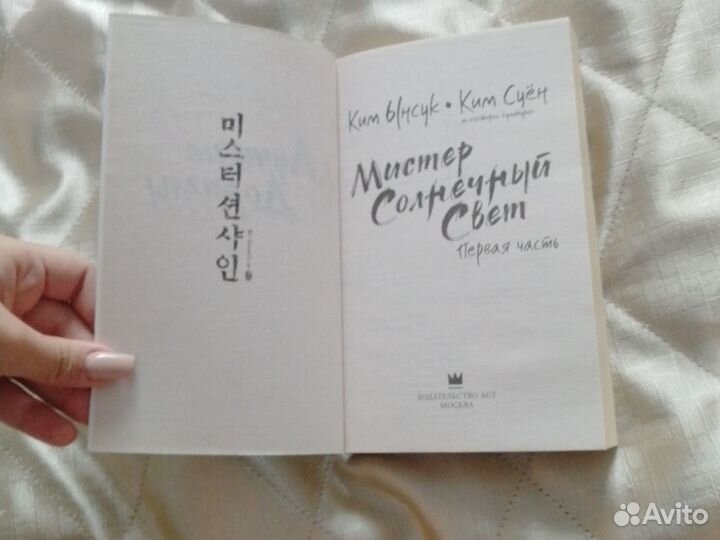 미스터 션샤인
Ким Ынсук • Ким Суён
Мистер
Солнечный
Свет
Первая часть
ИЗДАТЕЛЬСТВО АСТ
МОСКВА
Avito